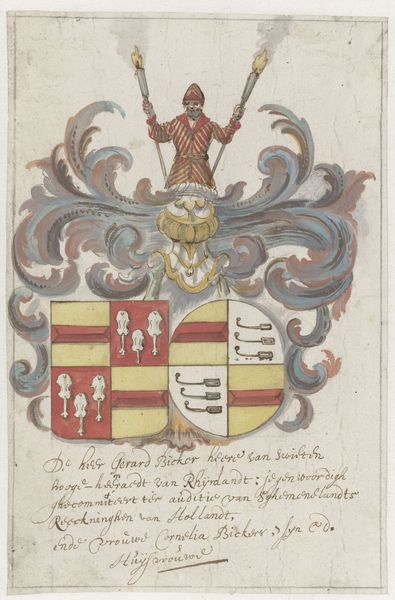 De heer Gerard Bicker heere van Swieten
hooge-heemraedt van Rhijnlandt: jegenwoordigh
ghecommitteert ter auditie van Ghemeenelandts
Reeckninghen van Hollandt,
ende vrouwe Cornelia Bickers, syn Ed.
Huysvrouwe